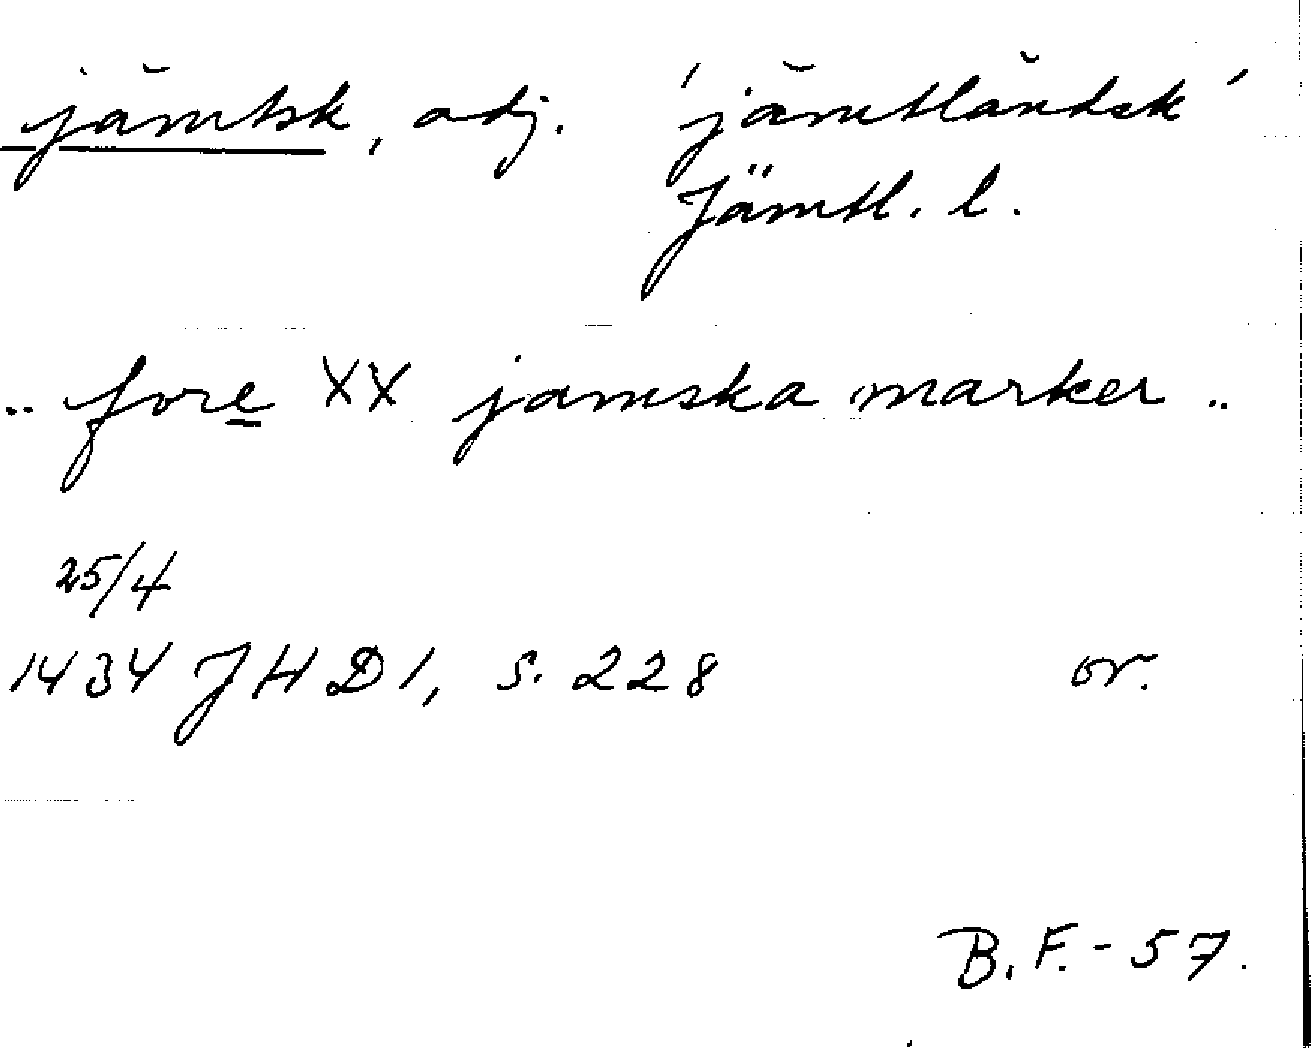 jämtsk, adj. 'jämtländsk'
Jämtl. l.
.. fore XX jamska marker ..
25/4
1434 JHD 1, s. 228 or.
B. F. - 57.